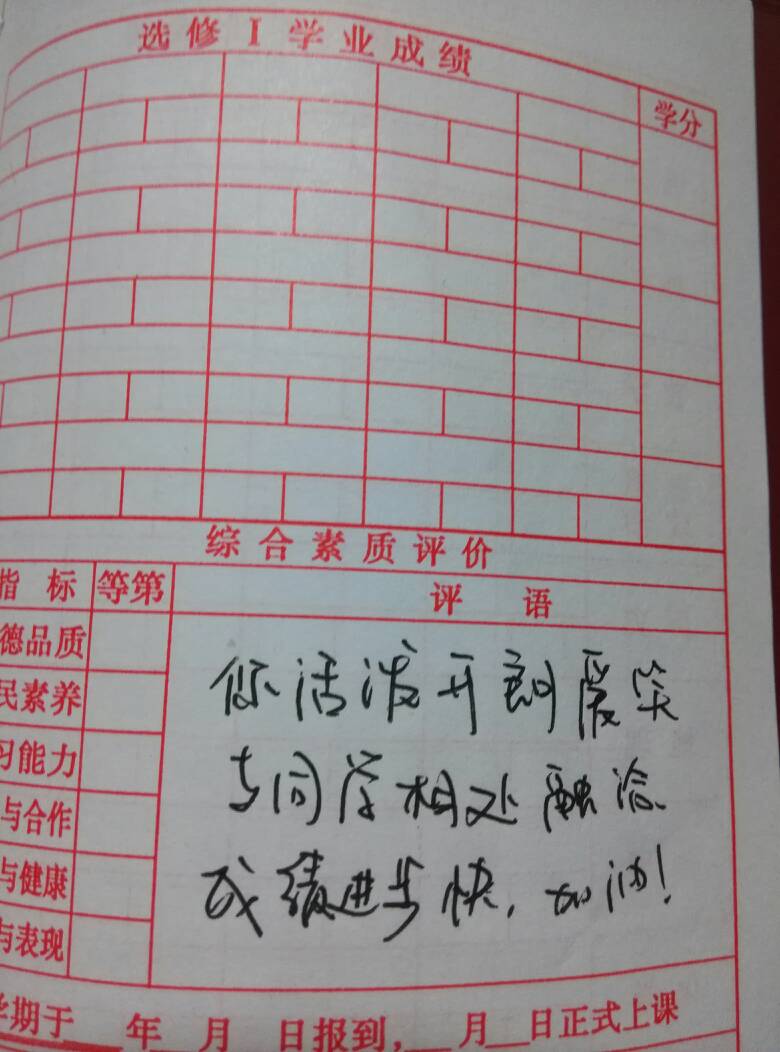 选修Ⅰ学业成绩
学分
综合素质评价
指标 等第 评语
德品质
民素养
习能力
与合作
与健康
与表现
你活泼开朗爱笑
与同学相处融洽
成绩进步快，加油！
学期于 年 月 日报到， 月 日正式上课